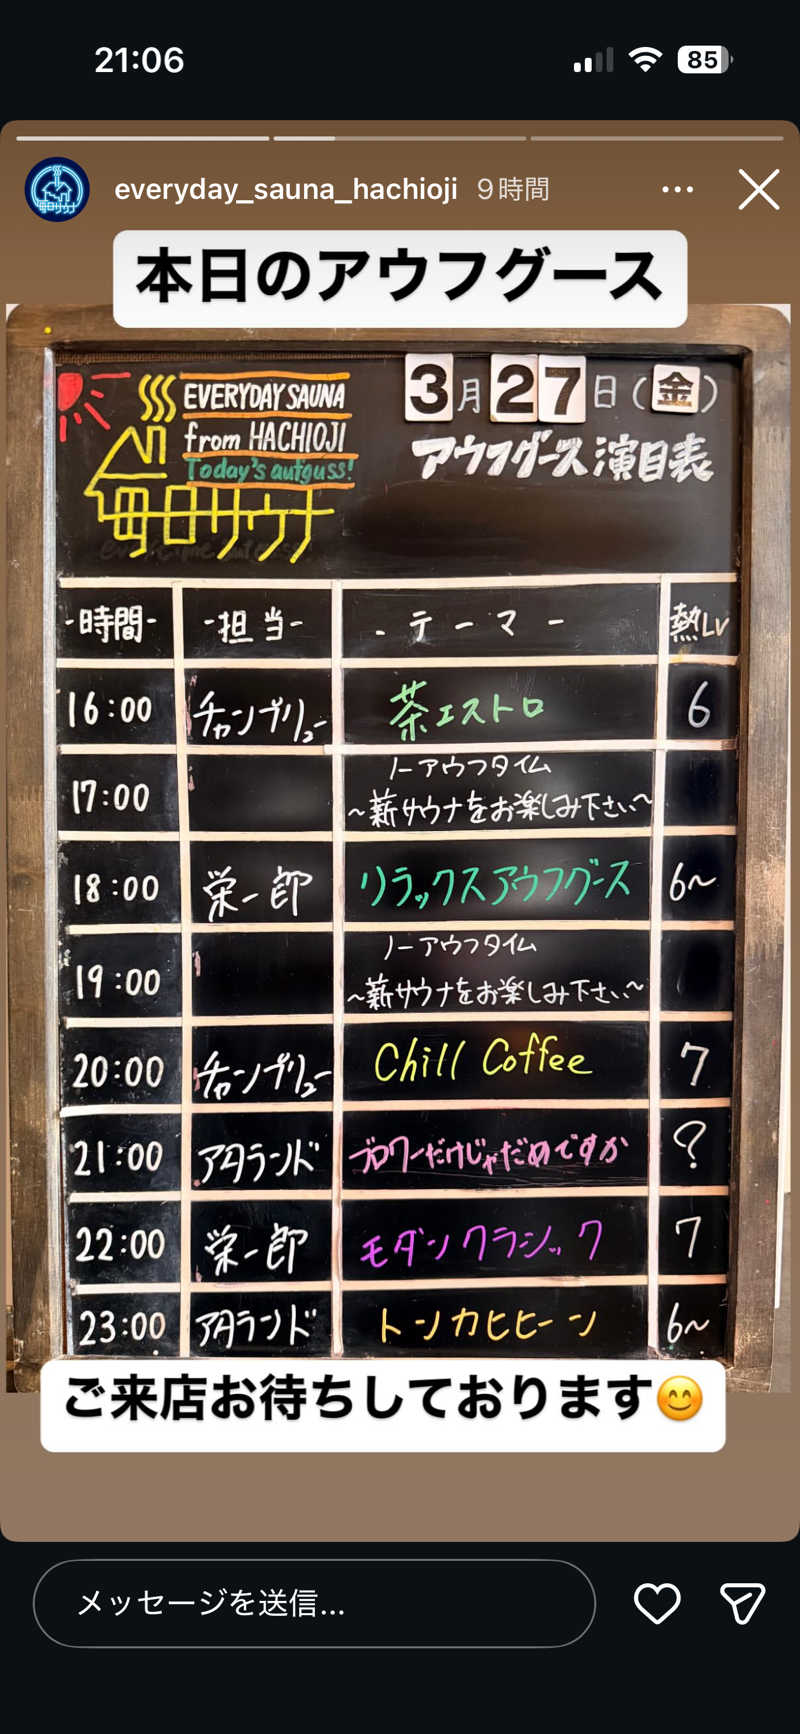 21:06
85
everyday_sauna_hachioji 9時間
本日のアウフグース
EVERYDAY SAUNA
from HACHIOJI
Today's aufguss!
毎日サウナ
3月27日(金)
アウフグース演目表
-時間- -担当- -テーマ- 熱Lv
16:00 チャンプリュー 茶エストロ 6
17:00 ノーアウフタイム
~薪サウナをお楽しみ下さい~
18:00 栄一郎 リラックスアウフグース 6~
19:00 ノーアウフタイム
~薪サウナをお楽しみ下さい~
20:00 チャンプリュー Chill Coffee 7
21:00 アタランド ブロワーだけじゃだめですか ?
22:00 栄一郎 モダンクラシック 7
23:00 アタランド トンカヒヒーン 6~
ご来店お待ちしております😊
メッセージを送信...